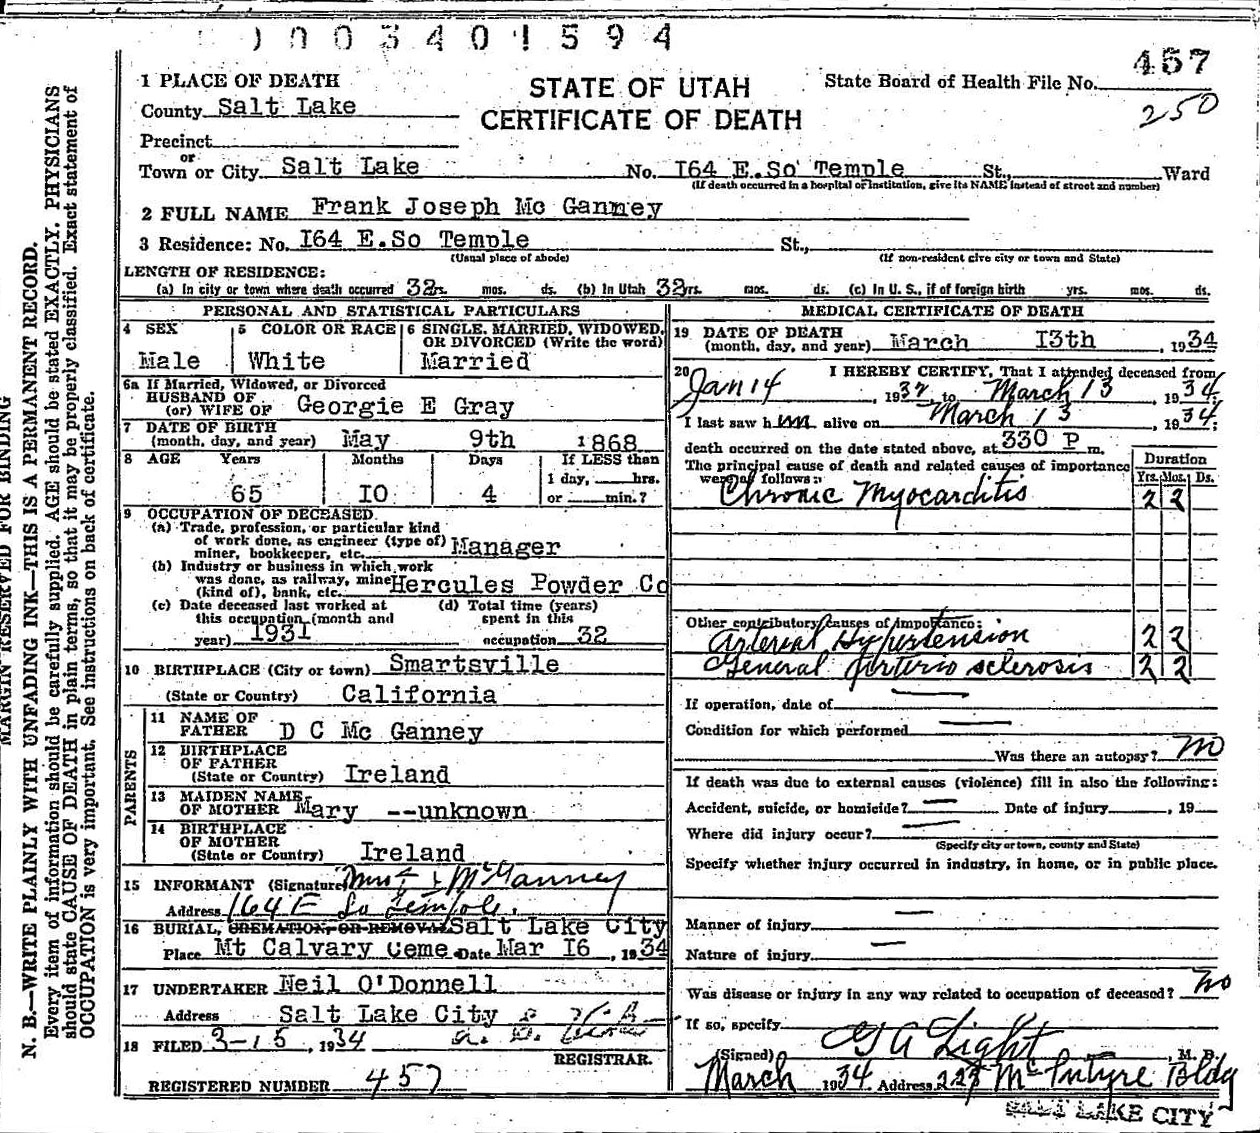 0003401594
STATE OF UTAH
CERTIFICATE OF DEATH
State Board of Health File No. 457
250
1 PLACE OF DEATH
County Salt Lake
Precinct
or
Town or City Salt Lake No. I64 E.So Temple St., Ward
(If death occurred in a hospital or institution, give its NAME instead of street and number)
2 FULL NAME Frank Joseph Mc Ganney
3 Residence: No. I64 E.So Temple St.,
(Usual place of abode) (If non-resident give city or town and State)
LENGTH OF RESIDENCE:
(a) In city or town where death occurred 32 yrs. mos. ds. (b) In Utah 32 yrs. mos. ds. (c) In U. S., if of foreign birth yrs. mos. ds.
PERSONAL AND STATISTICAL PARTICULARS
4 SEX Male
5 COLOR OR RACE White
6 SINGLE, MARRIED, WIDOWED, OR DIVORCED (Write the word) Married
6a If Married, Widowed, or Divorced
HUSBAND OF
(or) WIFE OF Georgie E Gray
7 DATE OF BIRTH
(month, day, and year) May 9th 1868
8 AGE Years Months Days If LESS than
1 day, hrs.
65 IO 4 or min.?
9 OCCUPATION OF DECEASED
(a) Trade, profession, or particular kind
of work done, as engineer (type of)
miner, bookkeeper, etc. Manager
(b) Industry or business in which work
was done, as railway, mine
(kind of), bank, etc. Hercules Powder Co
(c) Date deceased last worked at (d) Total time (years)
this occupation (month and spent in this
year) 1931 occupation 32
10 BIRTHPLACE (City or town) Smartsville
(State or Country) California
PARENTS
11 NAME OF
FATHER D C Mc Ganney
12 BIRTHPLACE
OF FATHER
(State or Country) Ireland
13 MAIDEN NAME
OF MOTHER Mary --unknown
14 BIRTHPLACE
OF MOTHER
(State or Country) Ireland
15 INFORMANT (Signature) Mrs F J McGanney
Address 164 E So Temple.
16 BURIAL, CREMATION, OR REMOVAL Salt Lake City
Place Mt Calvary Ceme Date Mar I6, 1934
17 UNDERTAKER Neil O'Donnell
Address Salt Lake City
18 FILED 3-15, 1934
REGISTRAR.
REGISTERED NUMBER 457
MEDICAL CERTIFICATE OF DEATH
19 DATE OF DEATH
(month, day, and year) March I3th, 1934
20 I HEREBY CERTIFY, That I attended deceased from
Jan 14, 1932, to March 13, 1934;
I last saw him alive on March 13, 1934;
death occurred on the date stated above, at 330 P m.
The principal cause of death and related causes of importance
were as follows: Duration
Yrs. Mos. Ds.
Chronic Myocarditis 2 2
Other contributory causes of importance:
Arterial Hypertension 2 2
General Arterio sclerosis 2 2
If operation, date of
Condition for which performed
Was there an autopsy? no
If death was due to external causes (violence) fill in also the following:
Accident, suicide, or homicide? Date of injury, 19
Where did injury occur?
(Specify city or town, county and State)
Specify whether injury occurred in industry, in home, or in public place.
Manner of injury
Nature of injury
Was disease or injury in any way related to occupation of deceased? No
If so, specify
(Signed) G A Light, M. D.
March 1934 Address 228 McIntyre Bldg
SALT LAKE CITY
MARGIN RESERVED FOR BINDING
N. B.—WRITE PLAINLY WITH UNFADING INK—THIS IS A PERMANENT RECORD.
Every item of information should be carefully supplied. AGE should be stated EXACTLY. PHYSICIANS
should state CAUSE OF DEATH in plain terms, so that it may be properly classified. Exact statement of
OCCUPATION is very important. See instructions on back of certificate.